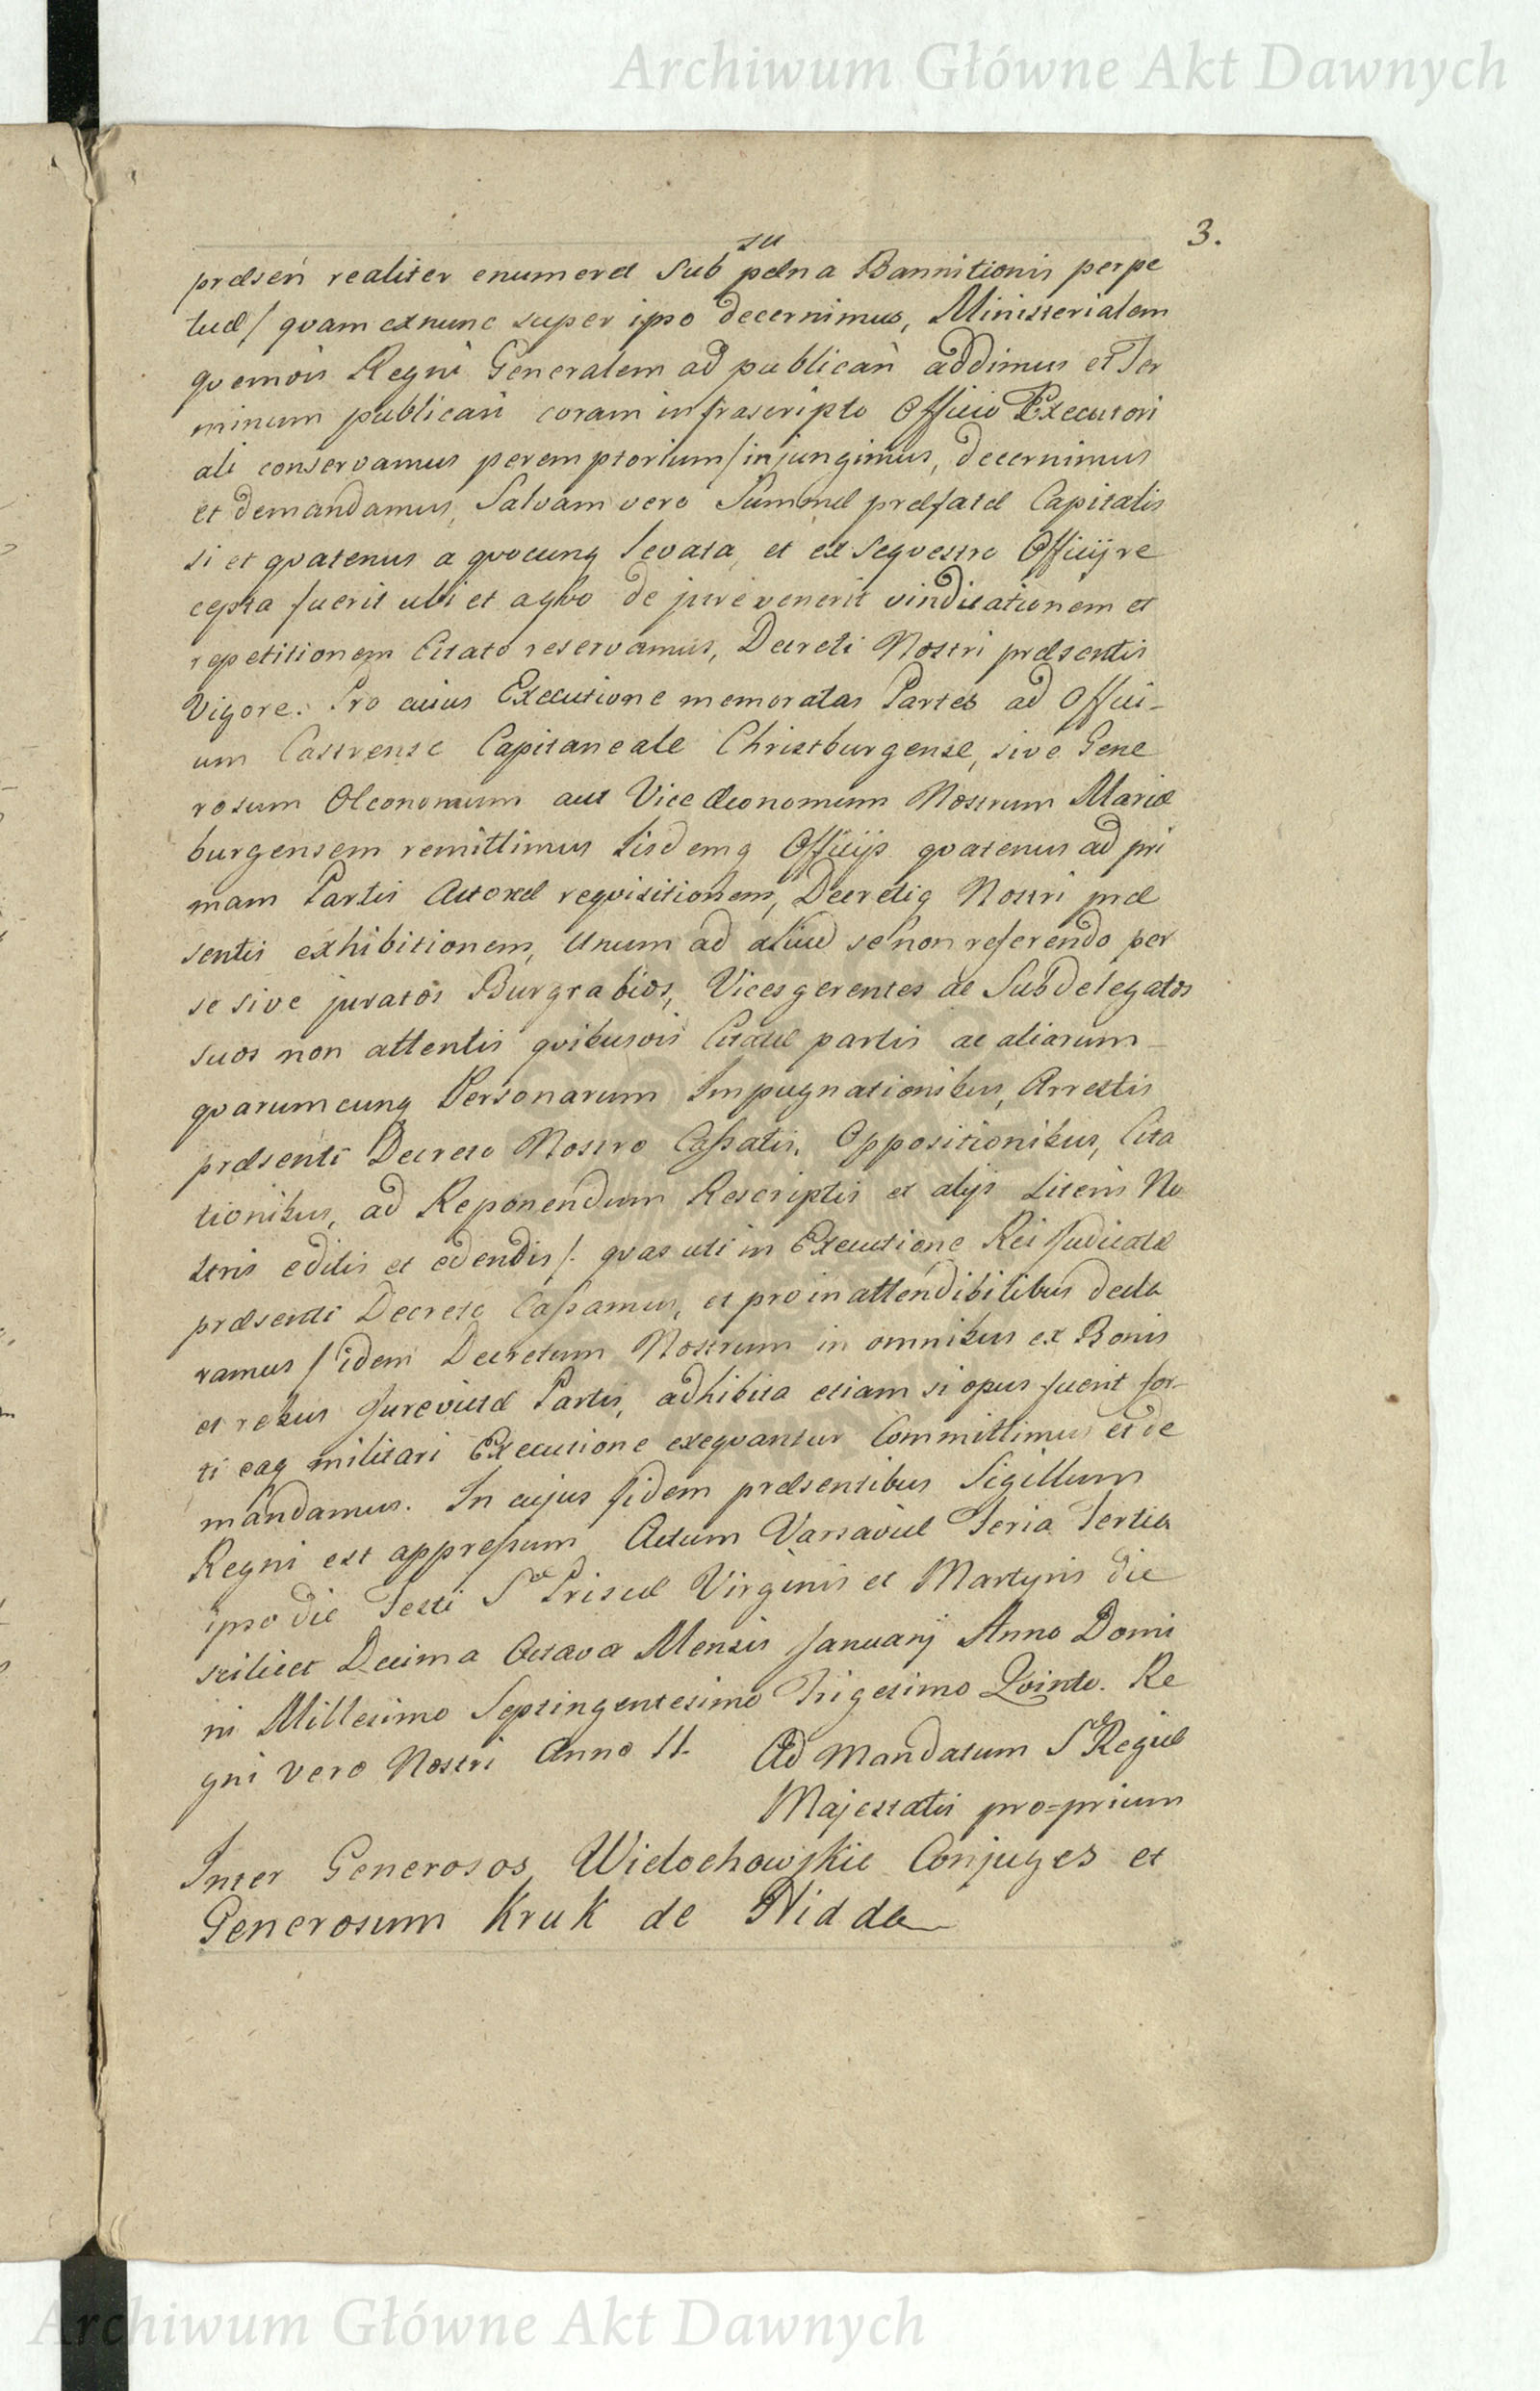 Archiwum Główne Akt Dawnych
3.
su
præsen realiter enumeret sub pœna Bannitionis perpe
tuæ / quam exnunc super ipso decernimus, Ministerialem
quemvis Regni Generalem ad publican addimus et Ter
minum publican coram infrascripto Officio Executori
ali conservamus peremptorium / injungimus, decernimus
et demandamus, Salvam vero Summæ præfatæ Capitalis
si et quatenus a quocunq levata, et ex Sequestro Officij re
cepta fuerit ubi et a quo de jure venerit vindicationem et
repetitionem Citato reservamus, Decreti Nostri præsentis
Vigore. Pro cuius Executione memoratas Partes ad Offici-
um Castrense Capitaneale Christburgense, sive Gene
rosum Oeconomum aut Vice Œconomum Nostrum Mariæ
burgensem remittimus Iisdemq Officijs quatenus ad pri
mam Partis Actoreæ requisitionem, Decretiq Nostri præ
sentis exhibitionem, Unum ad aliud se non referendo per
se sive juratos Burgrabios, Vicesgerentes ac Subdelegatos
suos non attentis quibusvis Citatæ partis ac aliarum
quarumcunq Personarum Impugnationibus, Arrestis
præsenti Decreto Nostro Cassatis, Oppositionibus, Cita
tionibus, ad Reponendum Rescriptis et alijs Literis No
stris editis et edendis /: quas uti in Executione Rei Judicatæ
præsenti Decreto Cassamus, et pro inattendibilibus decla
ramus / idem Decretum Nostrum in omnibus ex Bonis
et rebus Jurevictæ Partis, adhibita etiam si opus fuerit for-
ti eaq militari Executione exequantur Committimus et de
mandamus. In cujus fidem præsentibus Sigillum
Regni est appressum Actum Varsaviæ Feria Tertia
ipso die Festi Sæ Priscæ Virginis et Martyris die
scilicet Decima Octava Mensis Januarij Anno Domi
ni Millesimo Septingentesimo Trigesimo Quinto. Re
gni vero Nostri Anno II. Ad Mandatum Sæ Regiæ
Majestatis pro=prium
Inter Generosos Wielochowskie Conjuges et
Generosum Kruk de Nidda
Archiwum Główne Akt Dawnych